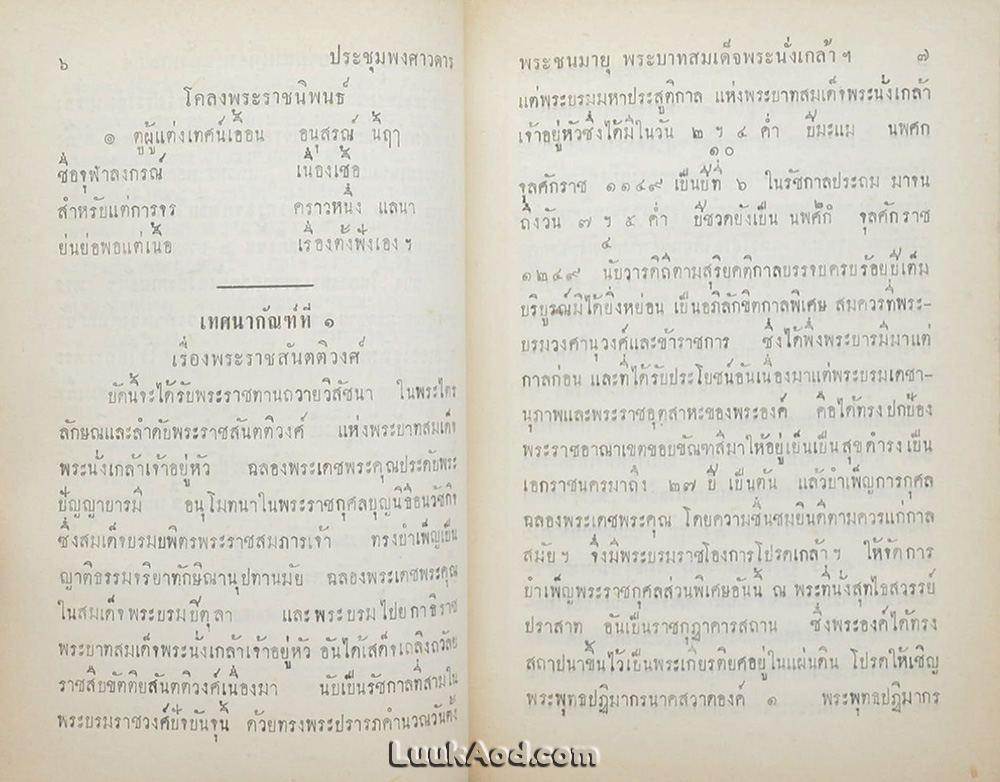 ๖ ประชุมพงศาวดาร
โคลงพระราชนิพนธ์
๑ ตูผู้แต่งเทศน์เอื้อน อนุสรณ์ นี้ฤๅ
ชื่อจุฬาลงกรณ์ เนื่องเชื้อ
สำหรับแต่การจร คราวหนึ่ง แลนา
ย่นย่อพอแต่เนื้อ เรื่องตั้งพึ่งเอง ฯ
เทศนากัณฑ์ที่ ๑
เรื่องพระราชสันตติวงศ์
ยัดนี้จะได้รับพระราชทานถวายวิสัชนา ในพระไตร
ลักษณและลำดับพระราชสันตติวงศ์ แห่งพระบาทสมเด็จ
พระนั่งเกล้าเจ้าอยู่หัว ฉลองพระเดชพระคุณประดับพระ
ปัญญาบารมี อนุโมทนาในพระราชกุศลบุญนิธี
ซึ่งสมเด็จบรมบพิตรพระราชสมภารเจ้า ทรงบำเพ็ญเป็น
ญาติธรรมจริยาทักษิณานุปทานมัย ฉลองพระเดชพระคุณ
ในสมเด็จพระบรมปีตุลา และพระบรมไปยกาธิราช
พระบาทสมเด็จพระนั่งเกล้าเจ้าอยู่หัว อันได้เสด็จเถลิงถวัลย
ราชสืบขัตติยสันตติวงศ์เนื่องมา นับเป็นรัชกาลที่สามใน
พระบรมราชวงศ์ปัจจุบันนี้ ด้วยทรงพระปรารภคำนวณวันตั้ง
พระชนมายุ พระบาทสมเด็จพระนั่งเกล้า ฯ ๗
แต่พระบรมมหาประสูติกาล แห่งพระบาทสมเด็จพระนั่งเกล้า
เจ้าอยู่หัวซึ่งได้มีในวัน ๒ ฯ ๔ ค่ำ ปีมะแม นพศก
๑๐
จุลศักราช ๑๑๔๙ เป็นปีที่ ๖ ในรัชกาลประถม มาจน
ถึงวัน ๗ ฯ ๕ ค่ำ ปีชวดยังเป็น นพศก จุลศักราช
๔
๑๒๔๙ นับวารดิถีตามสุริยคติกาลบรรจบครบร้อยปีเต็ม
บริบูรณ์มิได้ยิ่งหย่อน เป็นอภิลักขิตกาลพิเศษ สมควรที่พระ-
บรมวงศานุวงศ์และข้าราชการ ซึ่งได้พึ่งพระบารมีมาแต่
กาลก่อน และที่ได้รับประโยชน์อันเนื่องมาแต่พระบรมเดชา-
นุภาพและพระราชอุตสาหะของพระองค์ คือได้ทรงปกป้อง
พระราชอาณาเขตขอบขัณฑสีมาให้อยู่เย็นเป็นสุขดำรงเป็น
เอกราชนครมาถึง ๒๗ ปี เป็นต้น แล้วบำเพ็ญการกุศล
ฉลองพระเดชพระคุณ โดยความชื่นชมยินดีตามควรแก่กาล
สมัย ฯ จึ่งมีพระบรมราชโองการโปรดเกล้า ฯ ให้จัดการ
บำเพ็ญพระราชกุศลส่วนพิเศษอันนี้ ณ พระที่นั่งสุทไธสวรรย์
ปราสาท อันเป็นราชกุฎาคารสถาน ซึ่งพระองค์ได้ทรง
สถาปนาขึ้นไว้เป็นพระเกียรติยศอยู่ในแผ่นดิน โปรดให้เชิญ
พระพุทธปฏิมากรนาคสวาดองค์ ๑ พระพุทธปฏิมากร
LuukAod.com